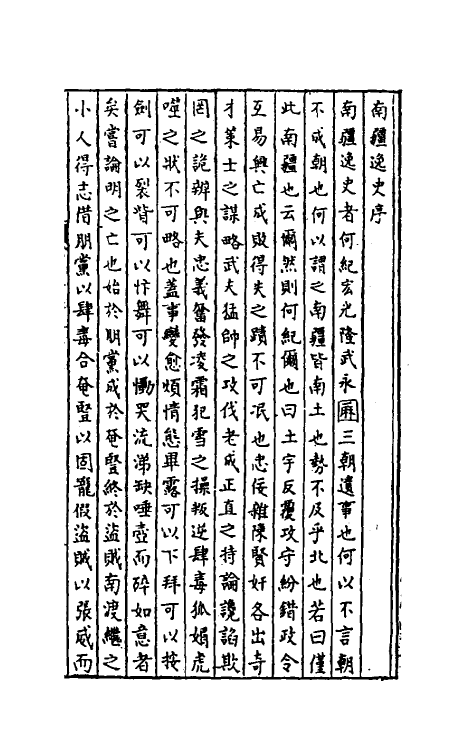 南疆逸史序
南疆逸史者何紀宏光隆武永厤三朝遺事也何以不言朝
不成朝也何以謂之南疆皆南土也勢不及乎北也若曰僅
此南疆也云爾然則何紀爾也曰土宇反覆攻守紛錯政令
互易興亡成敗得失之蹟不可冺也忠佞雜陳賢奸各出奇
才策士之謀略武夫猛帥之攻伐老成正直之持論讒謟欺
罔之詭辨與夫忠義奮發凌霜犯雪之操叛逆肆毒狐媚虎
噬之狀不可略也蓋事變愈煩情態畢露可以下拜可以按
劍可以裂眥可以忭舞可以慟哭流涕缺唾壺而碎如意者
矣嘗論明之亡也始於朋黨成於奄豎終於盜賊南渡繼之
小人得志借朋黨以肆毒合奄豎以固寵假盜賊以張威而